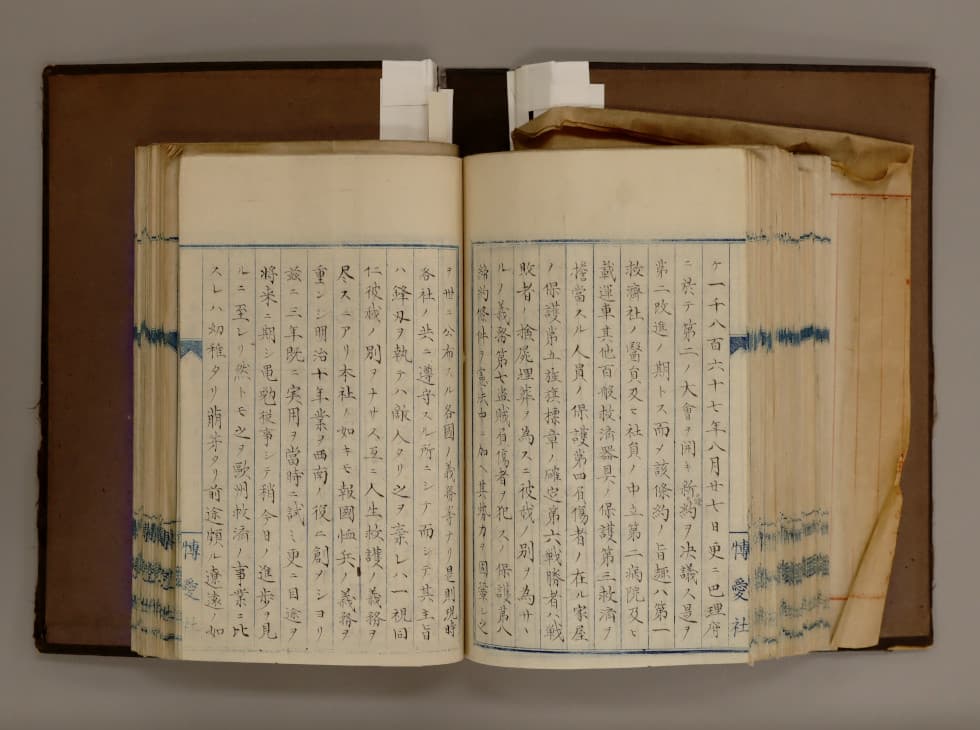 ケ一千八百六十七年八月廿七日更ニ巴理府
ニ於テ第二ノ大會ヲ開キ新約ヲ決議ス是ヲ
第二改進ノ期トス而メ該條約ノ旨趣ハ第一
救濟社ノ醫員及ヒ社員ノ中立第二病院及ヒ
載運車其他百般救済器具ノ保護第三救済ヲ
擔當スル人員ノ保護第四屓傷者ノ在ル家屋
ノ保護第五旌旗標章ノ確定第六戦勝者ハ戦
敗者ノ撿屍埋葬ヲ為スニ彼我別ヲ為サヽ
ルノ義務第七盗賊屓傷者ヲ犯スノ保護第八
締約條件ヲ憲法中ニ加へ其勢力ヲ国彙シ之
ヲ世ニ公布スル各國ノ義務等ナリ是則現時
各社ノ共ニ遵守スル所ニシテ而シテ其主旨
ハ鋒刃ヲ執テハ敵人タリ之ヲ棄レハ一視同
仁彼我ノ別ヲナサス互ニ人生救護ノ義務ヲ
尽スニアリ本社ノ如キモ報國恤兵ノ義務ヲ
重シシ明治十年業ヲ西南ノ役ニ創メシヨリ
茲ニ三年既ニ実用ヲ當時ニ試ミ更ニ目途ヲ
將来ニ期シ黽勉従事シテ稍今日ノ進歩ヲ見
ルニ至レリ然トモ之ヲ歐州救済ノ事業ニ比
スレハ幼稚タリ萠芽タリ前途頗ル遼遠ノ如
博愛社
博愛社